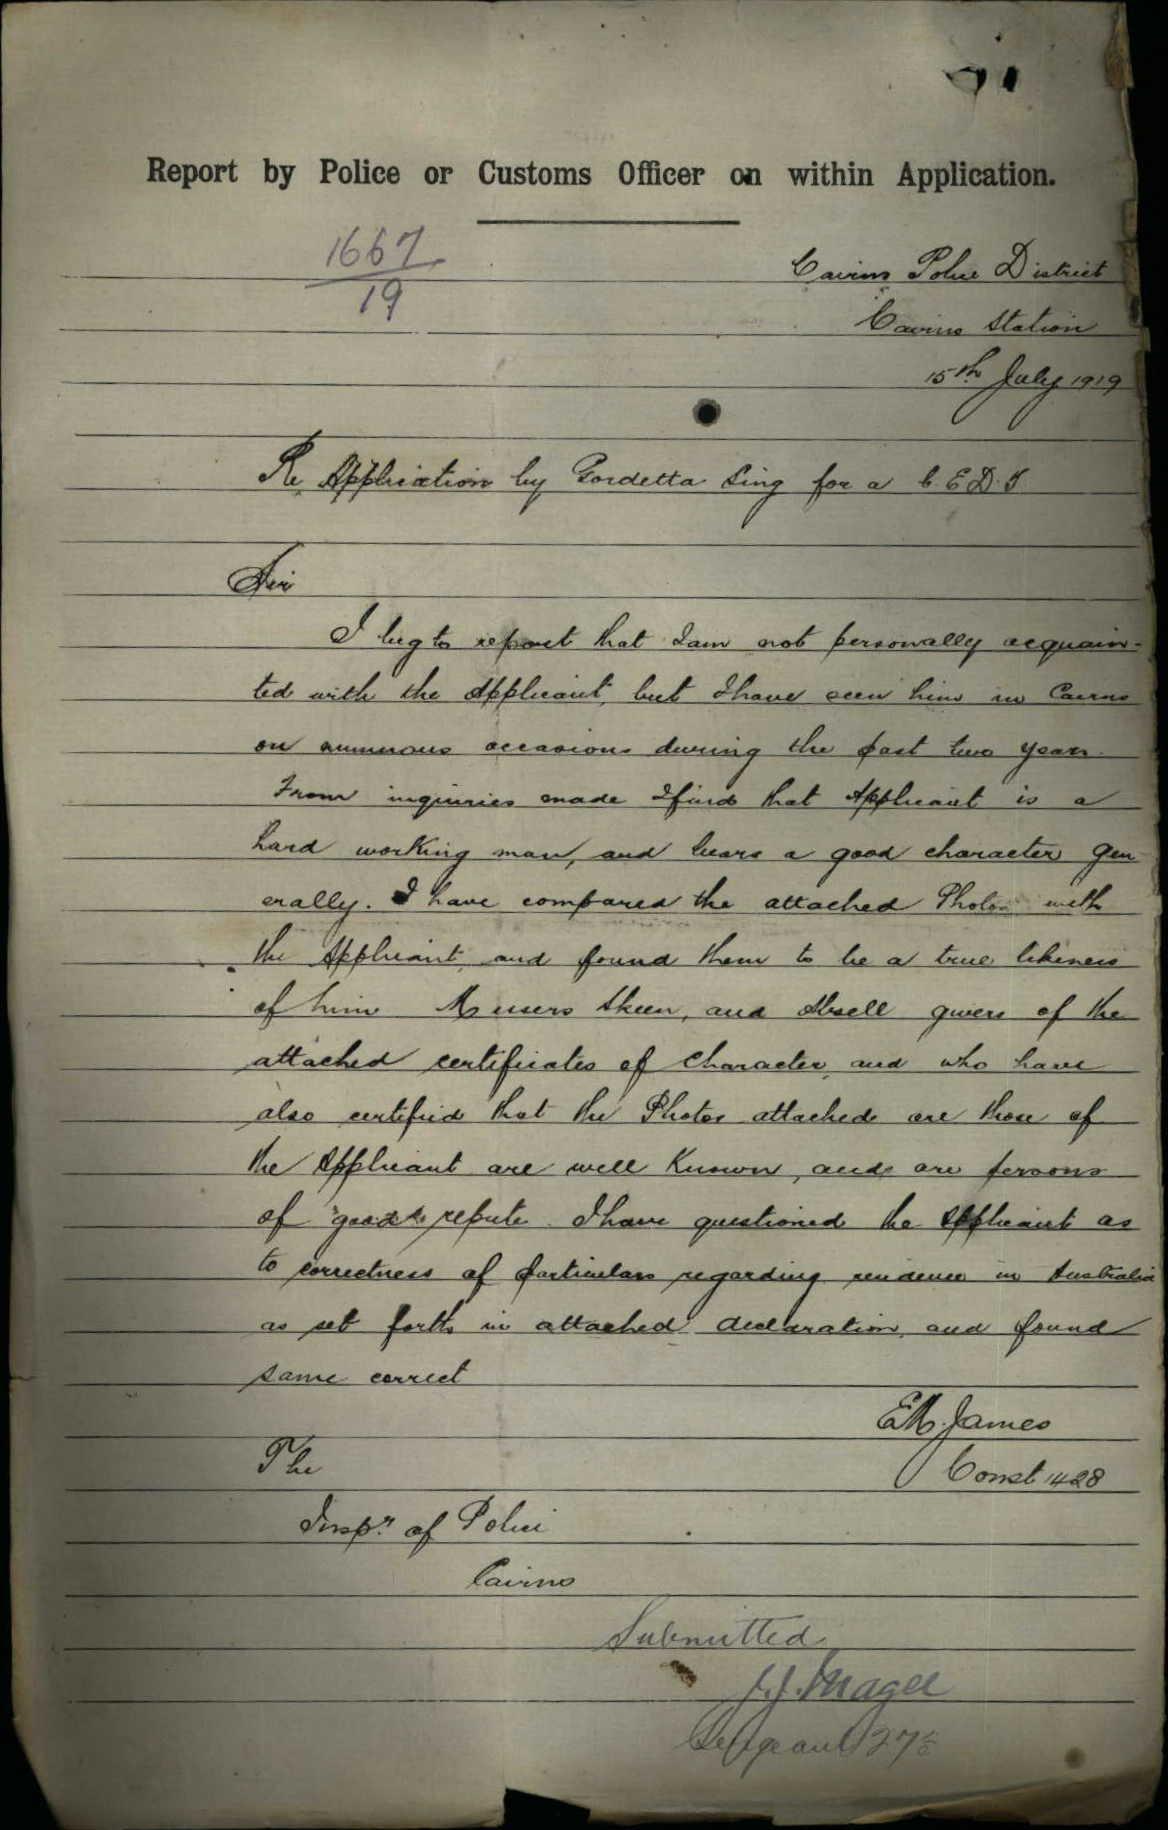 Report by Police or Customs Officer on within Application.
1667
19
Cairns Police District
Cairns Station
15th July 1919
Re Application by Gordetta Sing for a C.E.D.T
Sir
I beg to report that I am not personally acquain-
ted with the Applicant, but I have seen him in Cairns
on numerous occasions during the past two years.
From inquiries made I find that Applicant is a
hard working man, and bears a good character gen
erally. I have compared the attached Photos with
the Applicant, and found them to be a true likeness
of him Messrs Skeen, and givers of the
attached certificates of Character, and who have
also certified that the Photos attached are those of
the Applicant are well Known, and are persons
of good repute. I have questioned the Applicant as
to correctness of particulars regarding residence in Australia
as set forth in attached declaration, and found
same correct
E.M. James
Const 1428
The
Inspr. of Police
Cairns
Submitted
J.J. Magee
Sergeant